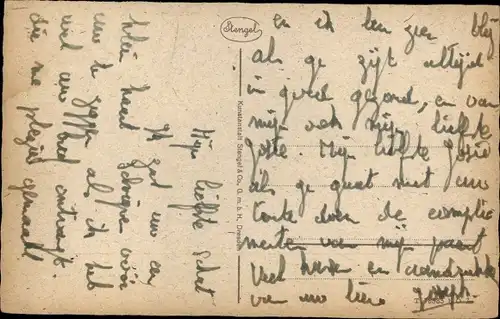 Mijn liefste schat
Ik zal uw en
klein kaart schrijven voor
uw te zeggen als ik heb
wel uw ontvangt.
die me plezier gemaakt
Stengel
Kunstanstalt Stengel & Co., G. m. b. H., Dresden
en ik ben zeer blij
als ge zijt altijd
in goed gezond, en van
mijn ook mijn liefste
Mijn liefste
als ge gaat met uw
tante doen de complie
menten van mijn paart
Veel kussen en
van uw lieve Joseph.